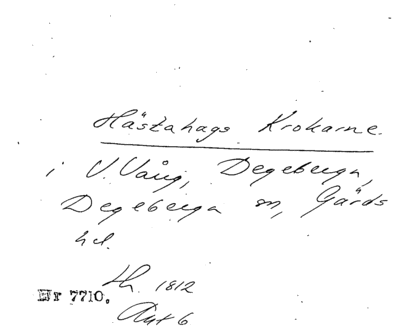 Hästahags Krokarne.
i V. Vång, Degeberga,
Degeberga sn, Gärds
hd.
1812
Nr 7710.
Akt 6